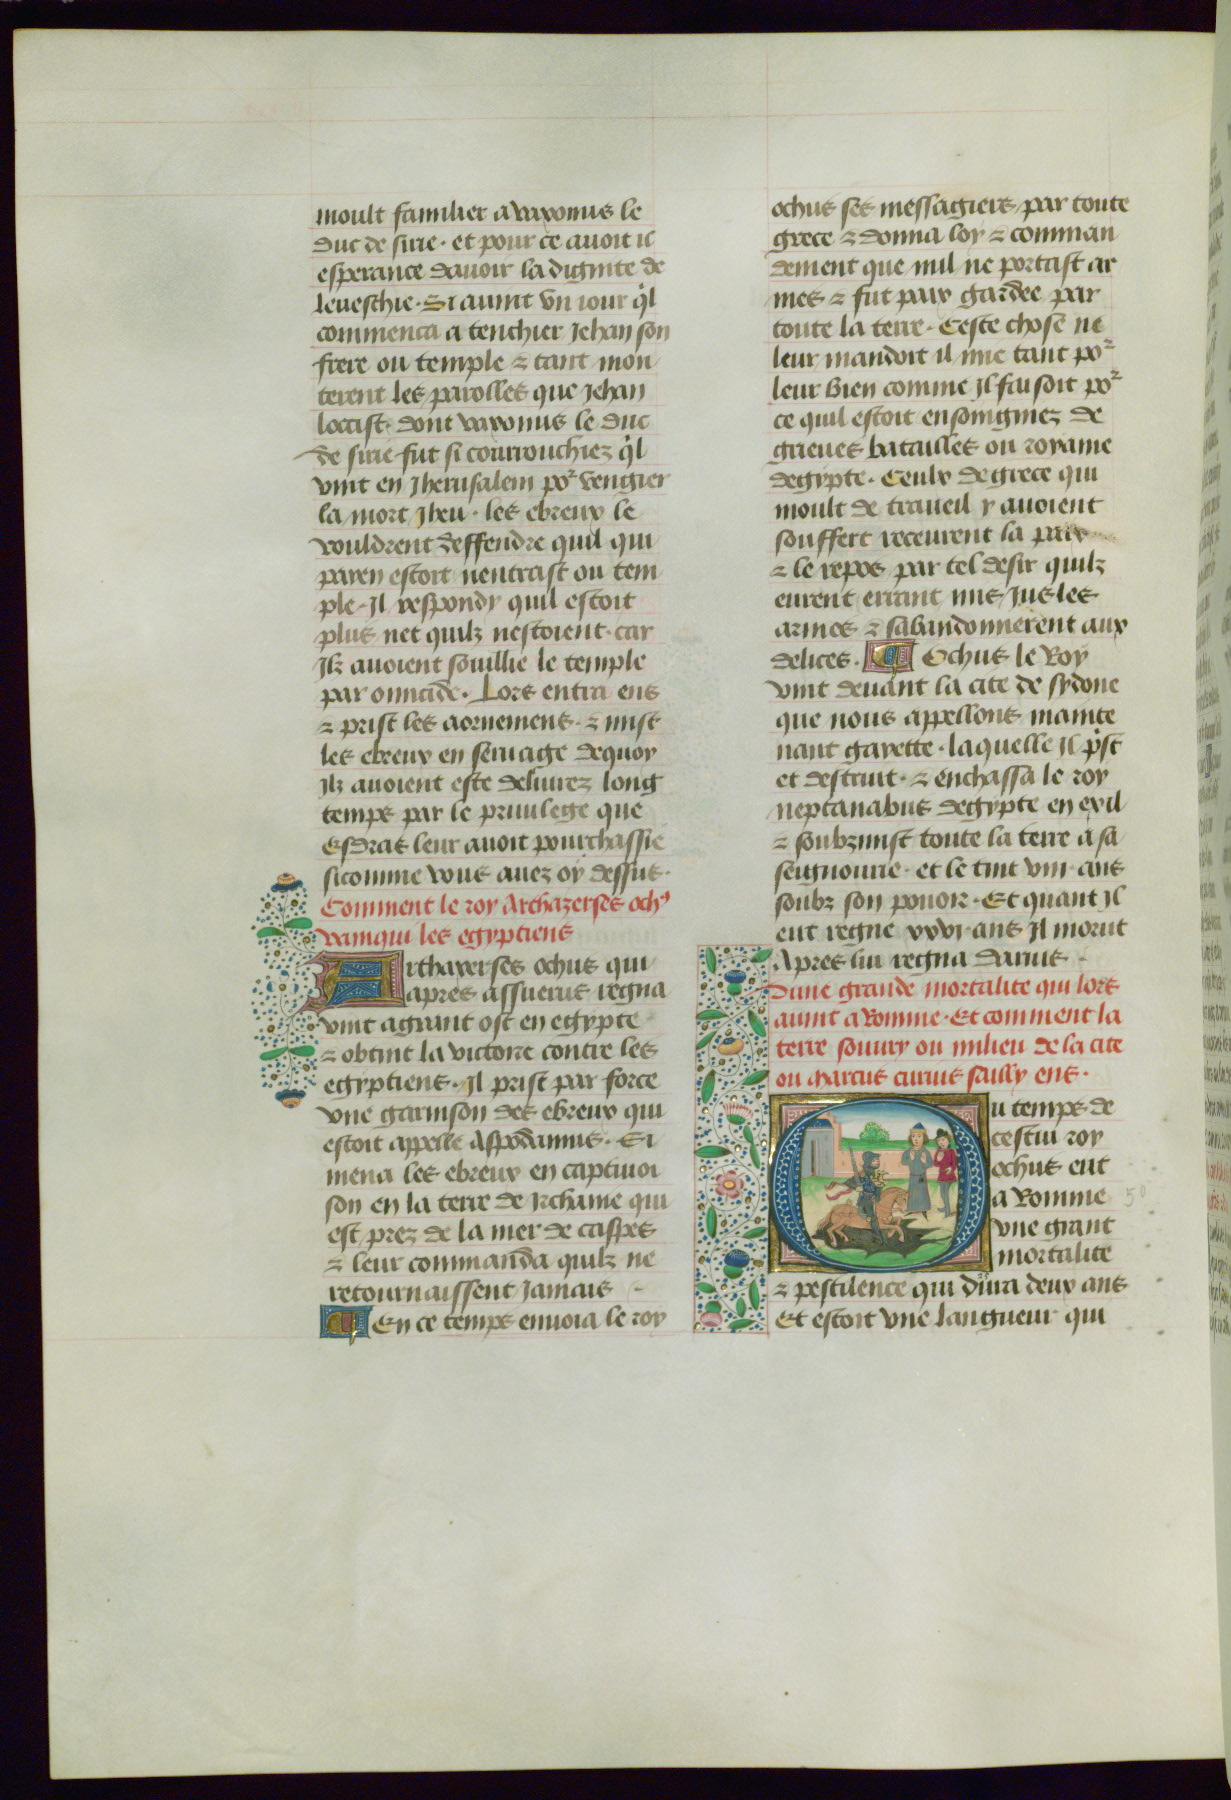 moult familier a vaxonus le
duc de sirie · et pour ce auoit il
esperance dauoir la dignite de
leueschie · Si auint vn iour ql
commenca a tenchier Jehan son
frere ou temple ⁊ tant mon
terent les parolles que Jehan
loccist · dont vaxonus le duc
de sirie fut si courrouchiez ql
vint en Jherusalem por vengier
la mort Jheu · les ebreux le
vouldrent deffendre quil qui
payen estoit nentrast ou tem
ple · Il respondy quil estoit
plus net quilz nestoient · car
Ilz auoient souillie le temple
par omicide · Lors entra ens
⁊ prist les aornemens · ⁊ mist
les ebreux en seruage dequoy
Ilz auoient este deliurez long
temps par le priuilege que
Esdras leur auoit pourchassie
sicomme vous auez oy dessus ·
Comment le roy Archazerses ochꝰ
vainqui les egyptiens
Arthaxerses ochus qui
apres assuerus regna
vint a grant ost en egypte
⁊ obtint la victoire contre les
egyptiens · Il prist par force
vne garnison des ebreux qui
estoit appelle aspodamus · Si
mena les ebreux en captiuoi
son en la terre de Irchame qui
est prez de la mer de caspes
⁊ leur commanda quilz ne
retournaissent Jamais
¶ En ce temps enuoia le roy
ochus ses messagiers par toute
grece ⁊ donna loy ⁊ comman
dement que nul ne portast ar
mes ⁊ fut paix gardee par
toute la terre · Ceste chose ne
leur mandoit il mie tant por
leur bien comme Il faisoit por
ce quil estoit ensoingniez de
grieues batailles ou royame
degypte · Ceulx de grece qui
moult de traueil y auoient
souffert receurent la paix
⁊ le repos par tel desir quilz
eurent errant mis Jus les
armes ⁊ sabandonnerent aux
delices · ¶ Ochus le Roy
vint deuant la cite de sydone
que nous appellons mainte
nant gayette · laquelle Il pst
et destruit · ⁊ enchassa le roy
neptanabus degypte en exil
⁊ soubzmist toute la terre a sa
seignourie · et le tint viii · ans
soubz son pouoir · Et quant Il
eut regne xxvi · ans Il morut
Apres lui regna darius ·
Dune grande mortalite qui lors
auint a Romme · Et comment la
terre souury ou milieu de la cite
ou Marcus curius sailly ens ·
Ou temps de
cestui roy
ochus eut
a Romme
vne grant
mortalite
⁊ pestilence qui dura deux ans
Et estoit vne langueur qui
50